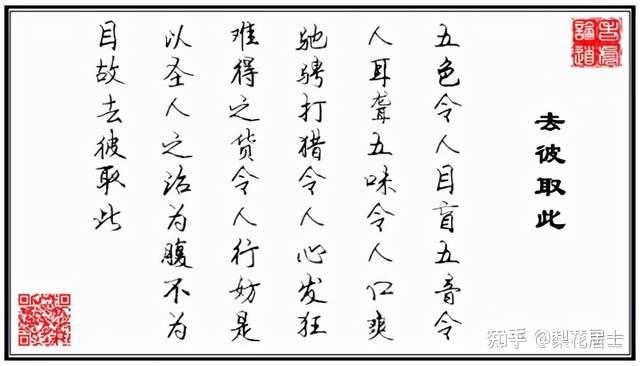 去彼取此
五色令人目盲五音令
人耳聋五味令人口爽
驰骋打猎令人心发狂
难得之货令人行妨是
以圣人之治为腹不为
目故去彼取此
知乎 @梨花居士